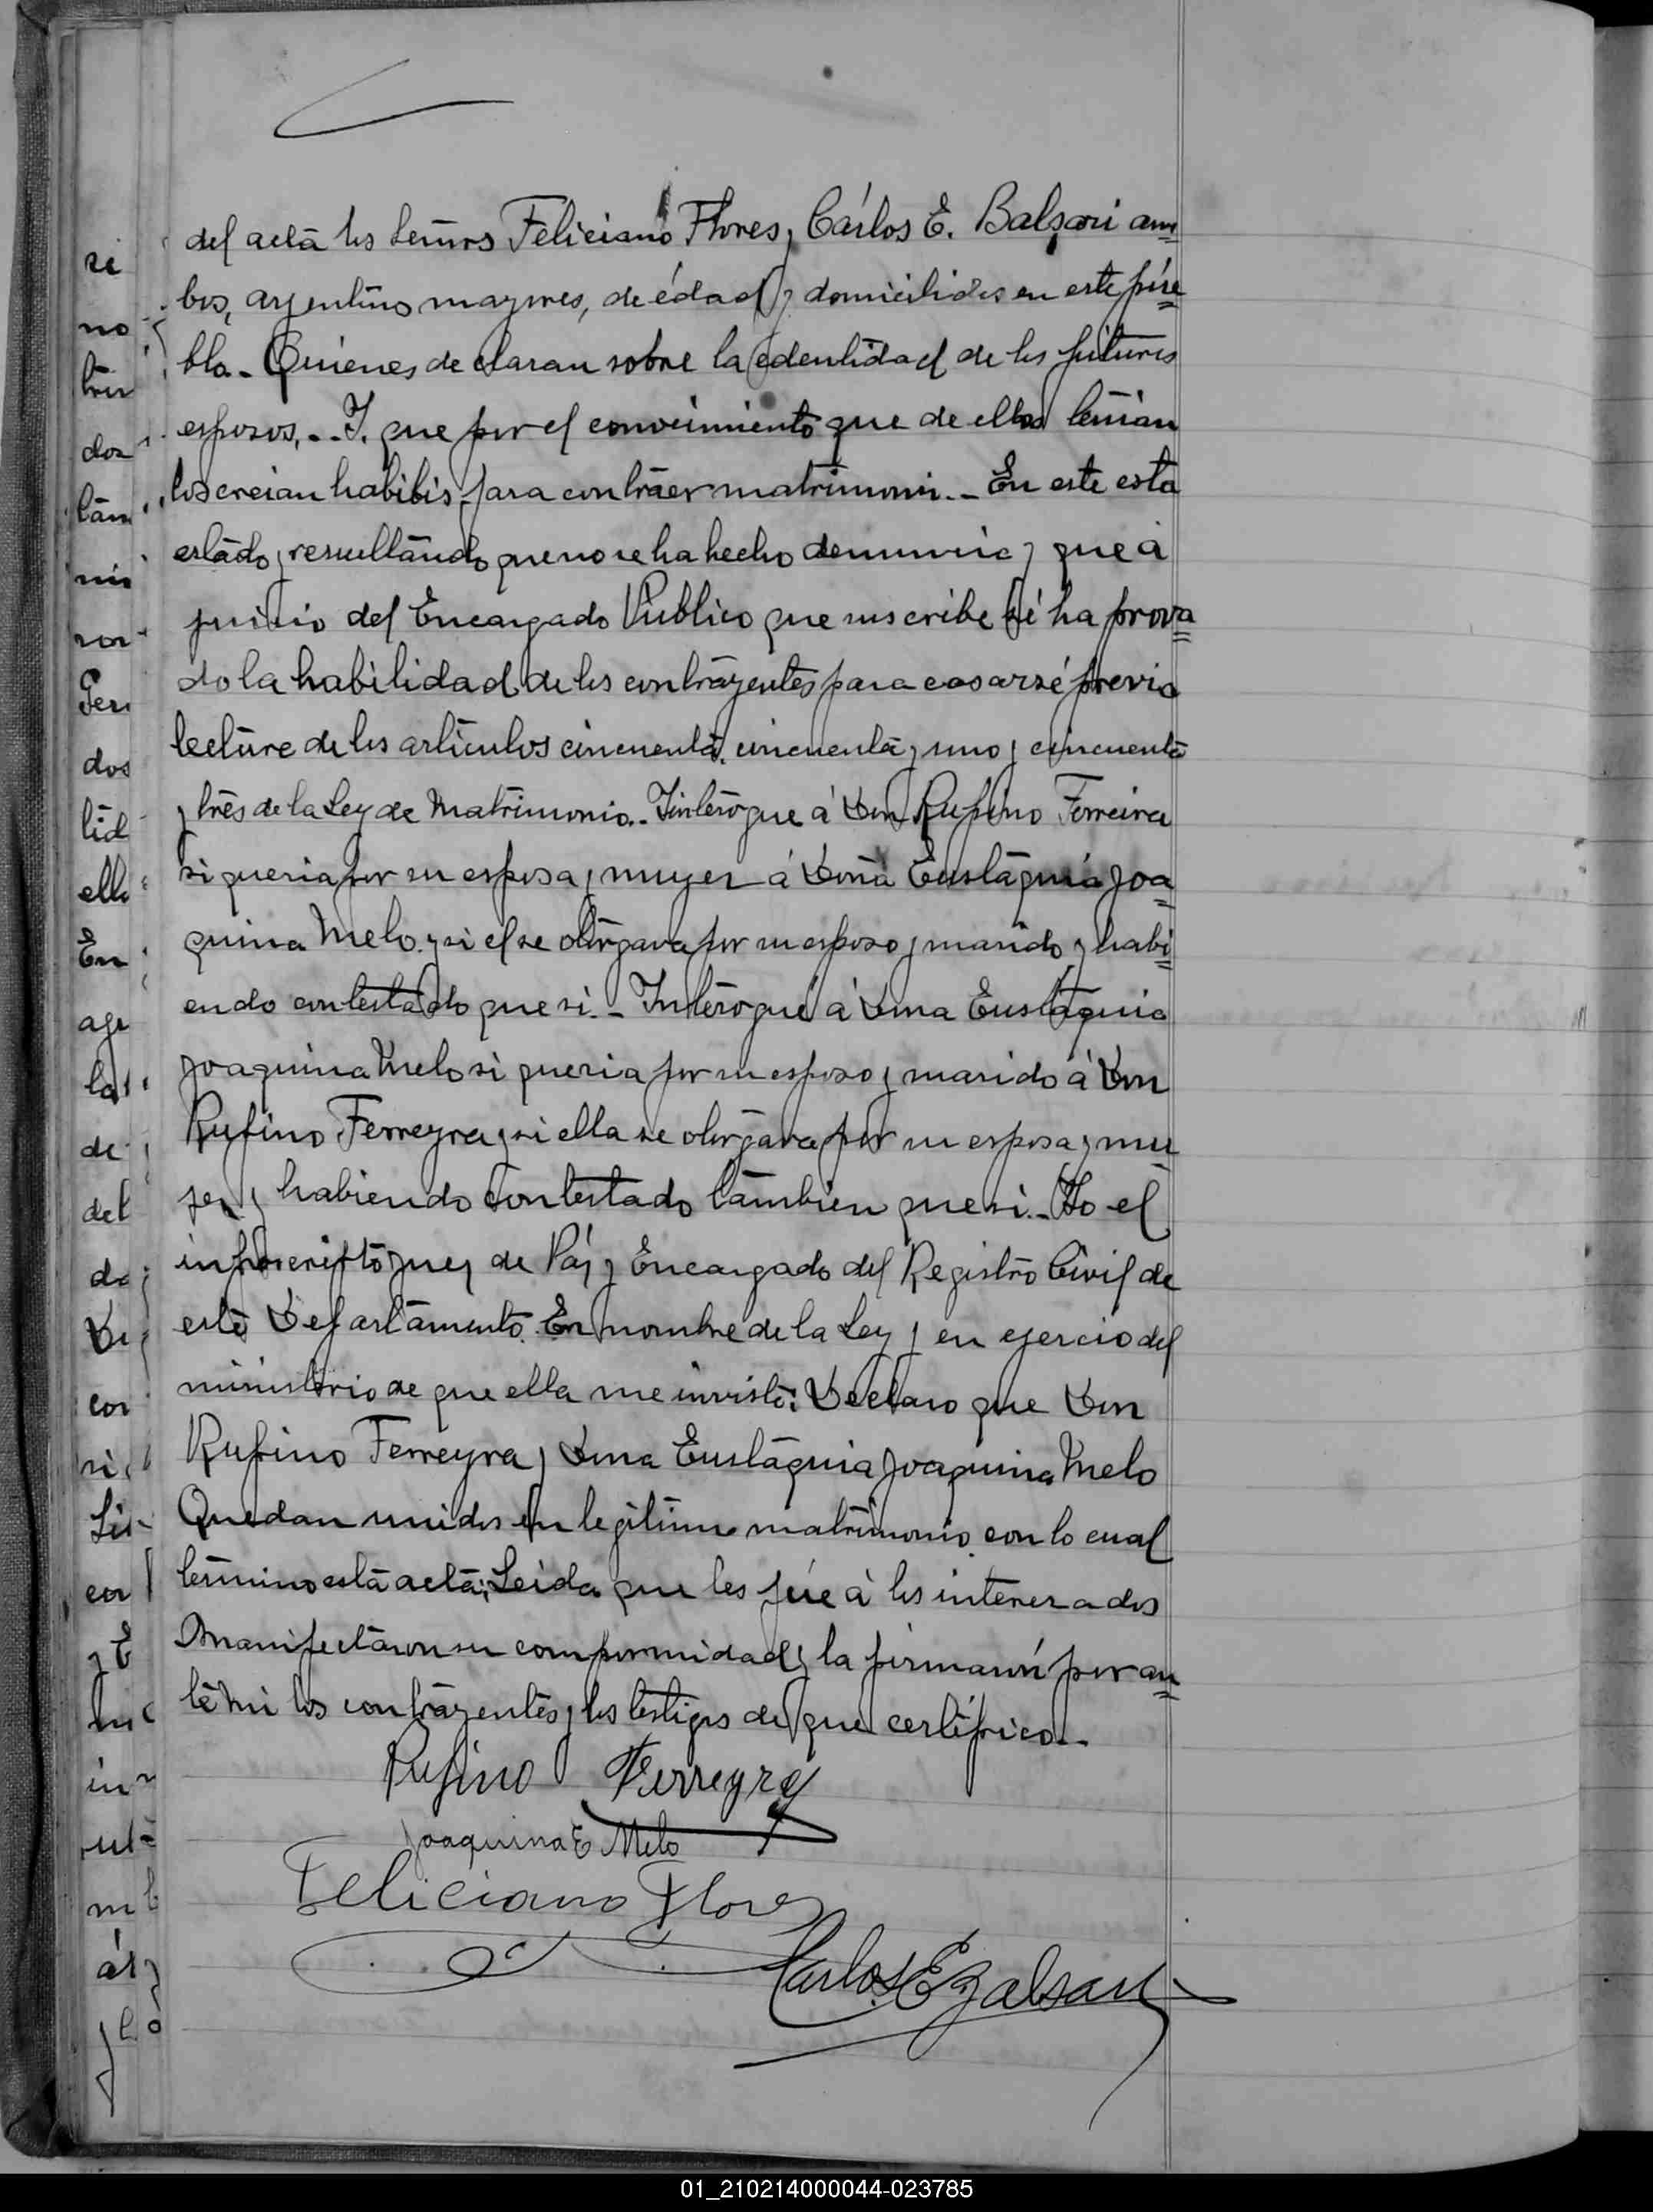 del acta los Señors Feliciano Flores, y Cárlos E. Balsari am
bos, argentino mayores, de édad y domicilidos en este púe
blo. - Quienes declaran sobre la edentidad de los futuros
esposos, . - I. que por el conocimiento que de ellos tenian
los creian habibis para contraer matrimonio. - En este esta
estado y resultando que no se ha hecho denuncia y que a
juicio del Encargado Publico que suscribe sé ha prova
do la habilidad de los contrayentes para casarsé previa
lectura de los articulos cincuenta, cincuenta y uno y cincuenta
y tres de la Ley de Matrimonio. - Yinterogue á Don Rufino Ferreira
si queria por su esposa y muyer á Doña Eustaquia Joa
quina Melo y si el se otorgava por su esposo y marido y habi
endo contestado que si. - Interogué á Dona Eustaquia
Joaquina Melo si queria por su esposo y marido á Don
Rufino Ferreyra y si ella se otorgava por su esposa y mu
jer y habiendo contestado tambien que si. - Yo el
infrascripto Juez de Paz y Encargado del Registro Civil de
este Departamento. En nombre de la Ley y en ejercio del
ministerio de que ella me inviste: Declaro que Don
Rufino Ferreyra y Dona Eustaquia Joaquina Melo
Quedan unidos en legitimo matrimonio con lo cual
termino esta acta; Leida que les fúe à los interesados
Manifestaron su comformidad y la firmarón por an
te mi los contrayentes y los testigos de que certifico. -
Rufino Ferreyra
Joaquina E Melo
Feliciano Flores
Carlos E Balsari
01_210214000044-023785